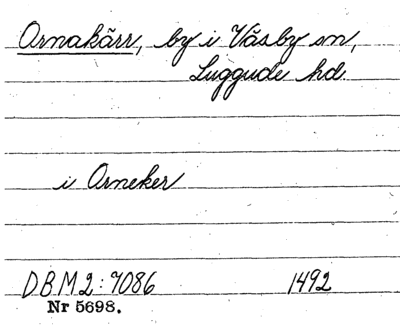 Ornakärr, by i Väsby sn,
Luggude hd.
i Orneker
DBM2:7086 1492
Nr 5698.